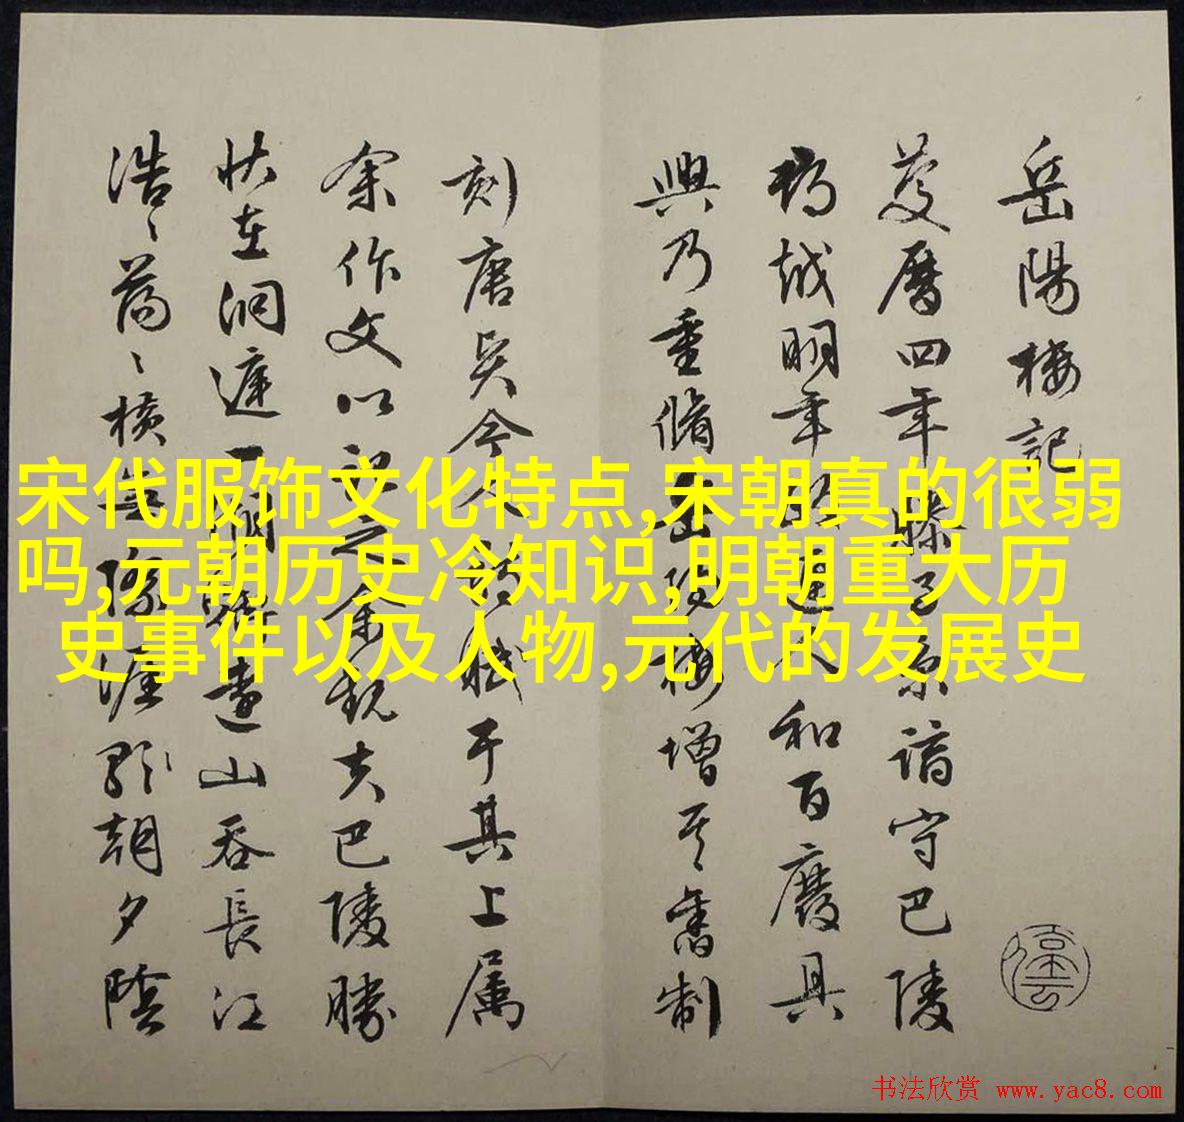 岳陽樓記
慶曆四年滕子京謫守巴陵
郡越明年政通人和百廢具
興乃重脩岳陽樓增其舊制
刻唐吴今人詩賦于其上属
余作文以記之余觀夫巴陵勝
状在洞庭一湖銜遠山吞長江
浩〻蕩〻横無際涯朝夕陰
宋代服饰文化特点,宋朝真的很弱
吗,元朝历史冷知识,明朝重大历
史事件以及人物,元代的发展史
书法欣赏 www.yac8.com